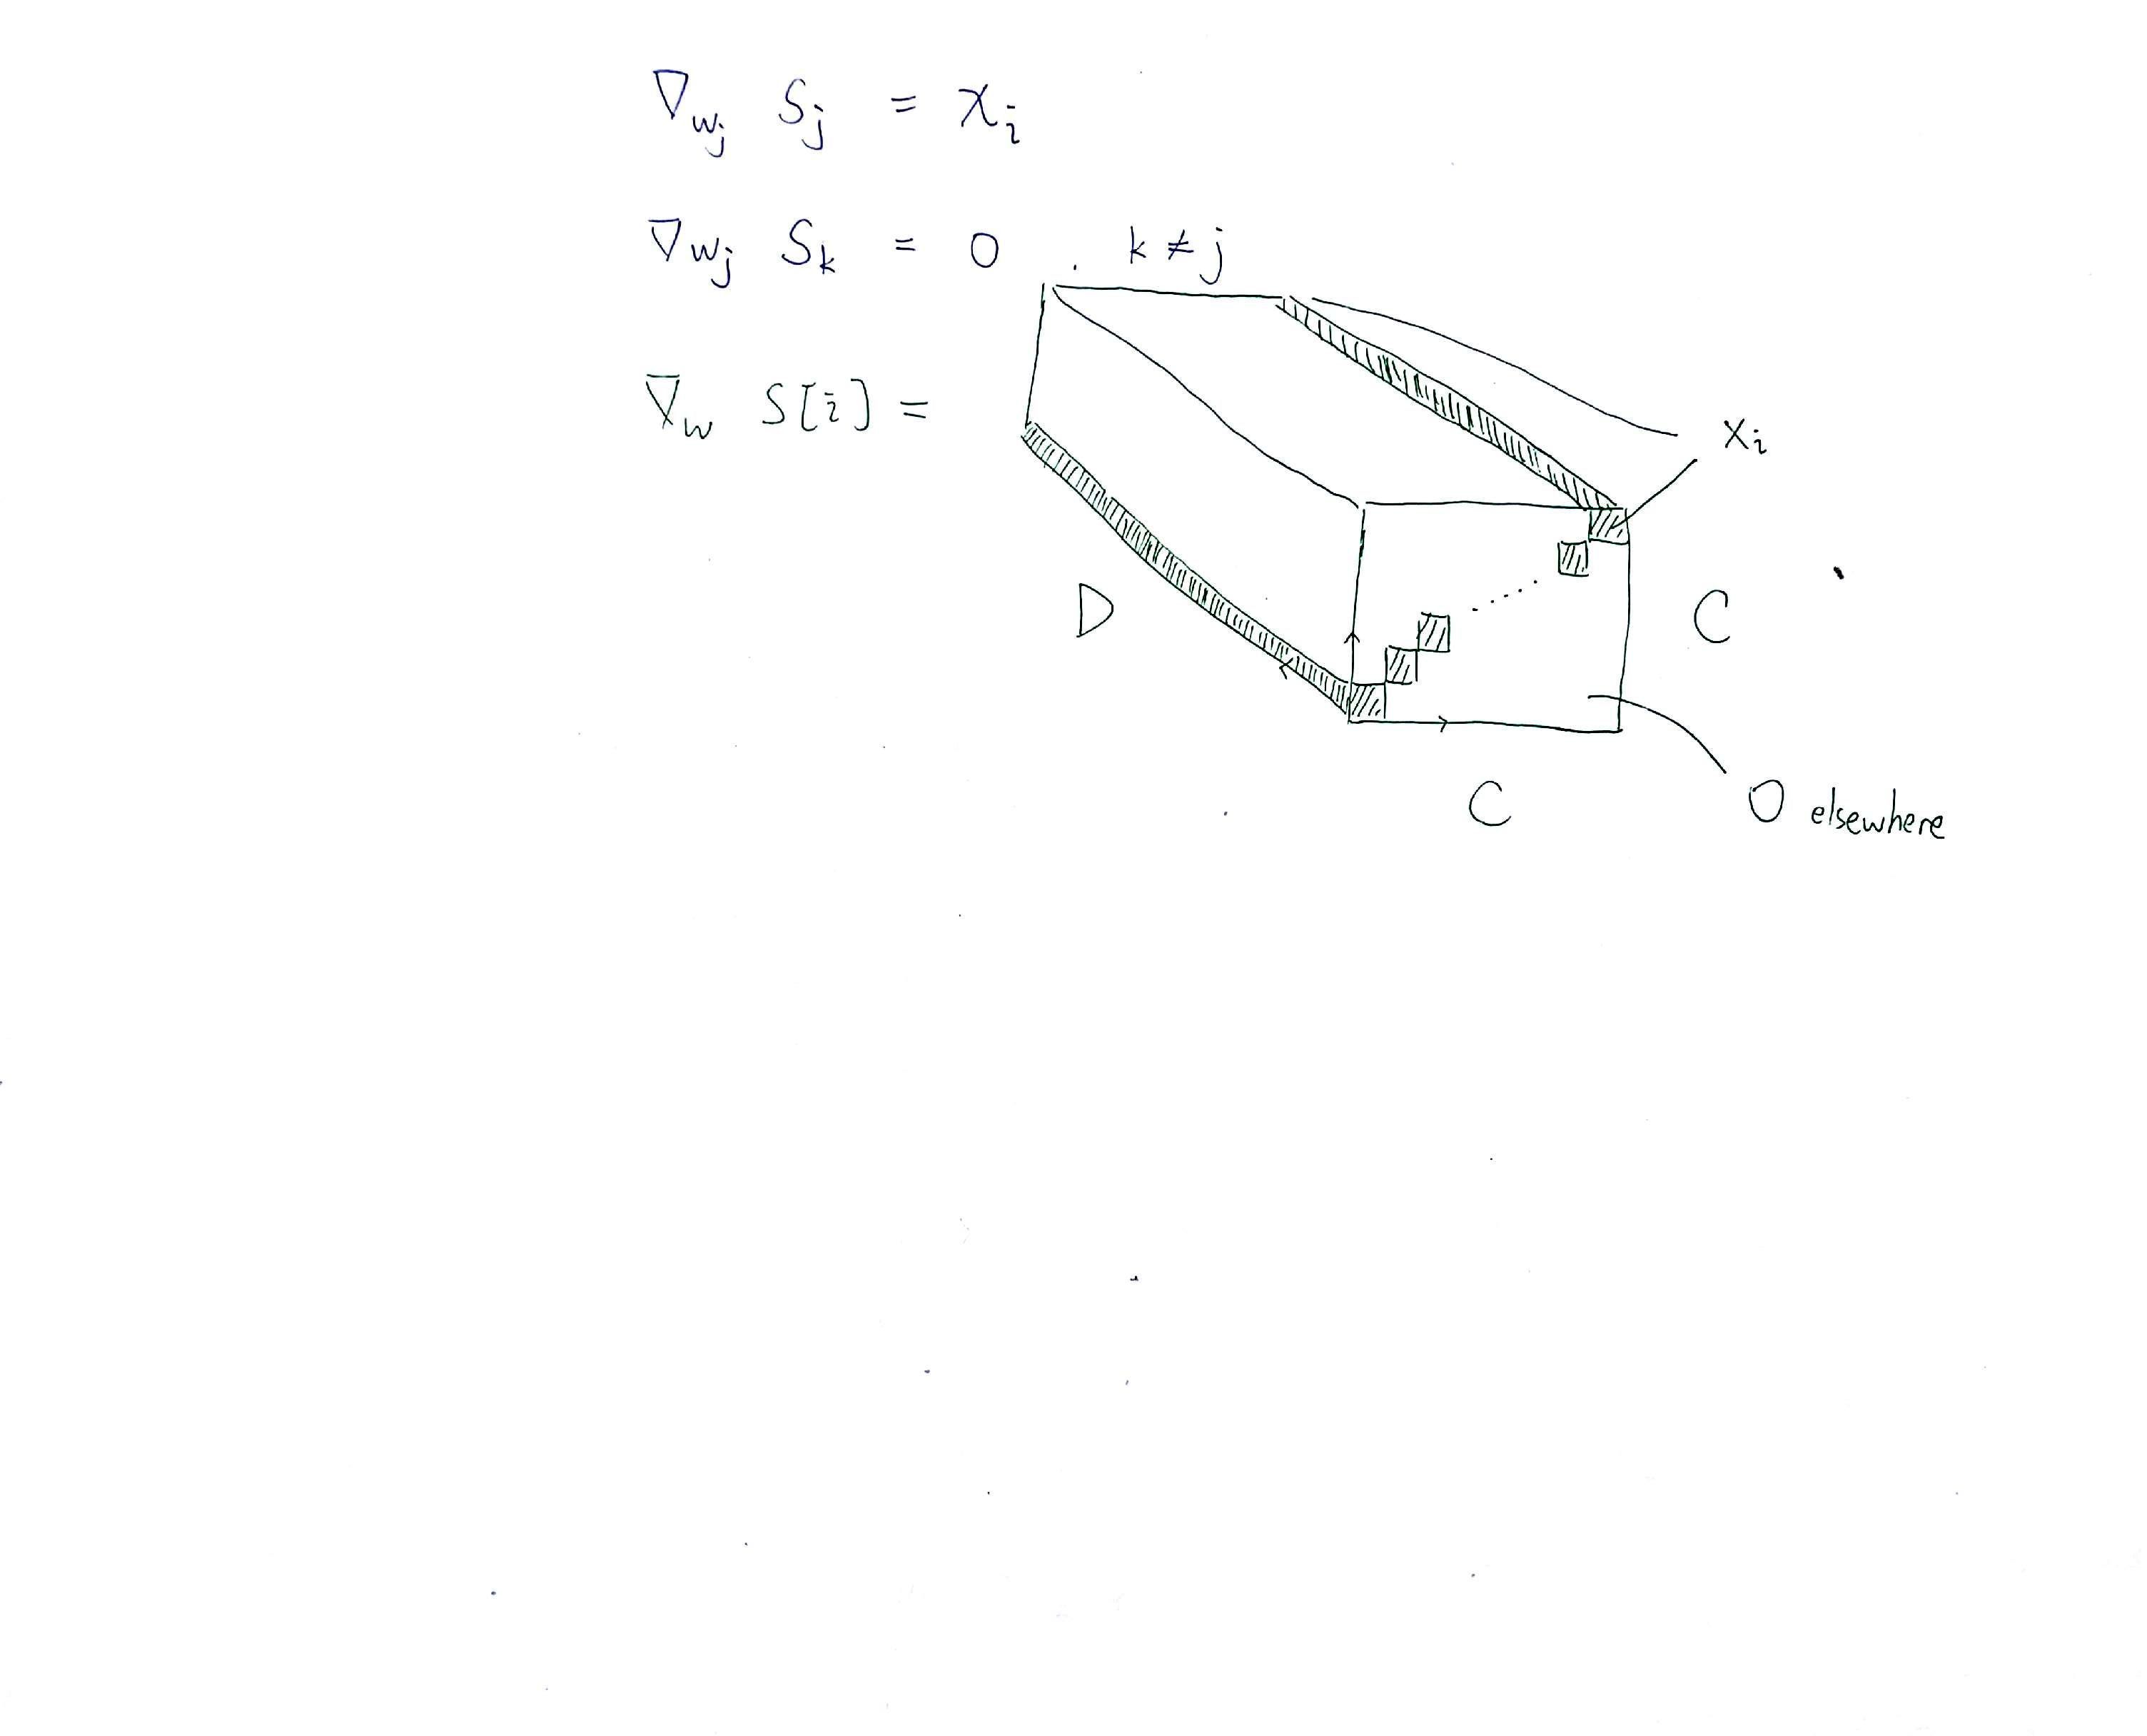 ∇wj Sj = xi
∇wj Sk = 0 . k ≠ j
∇w S[i] =
xi
D
C
C
0 elsewhere